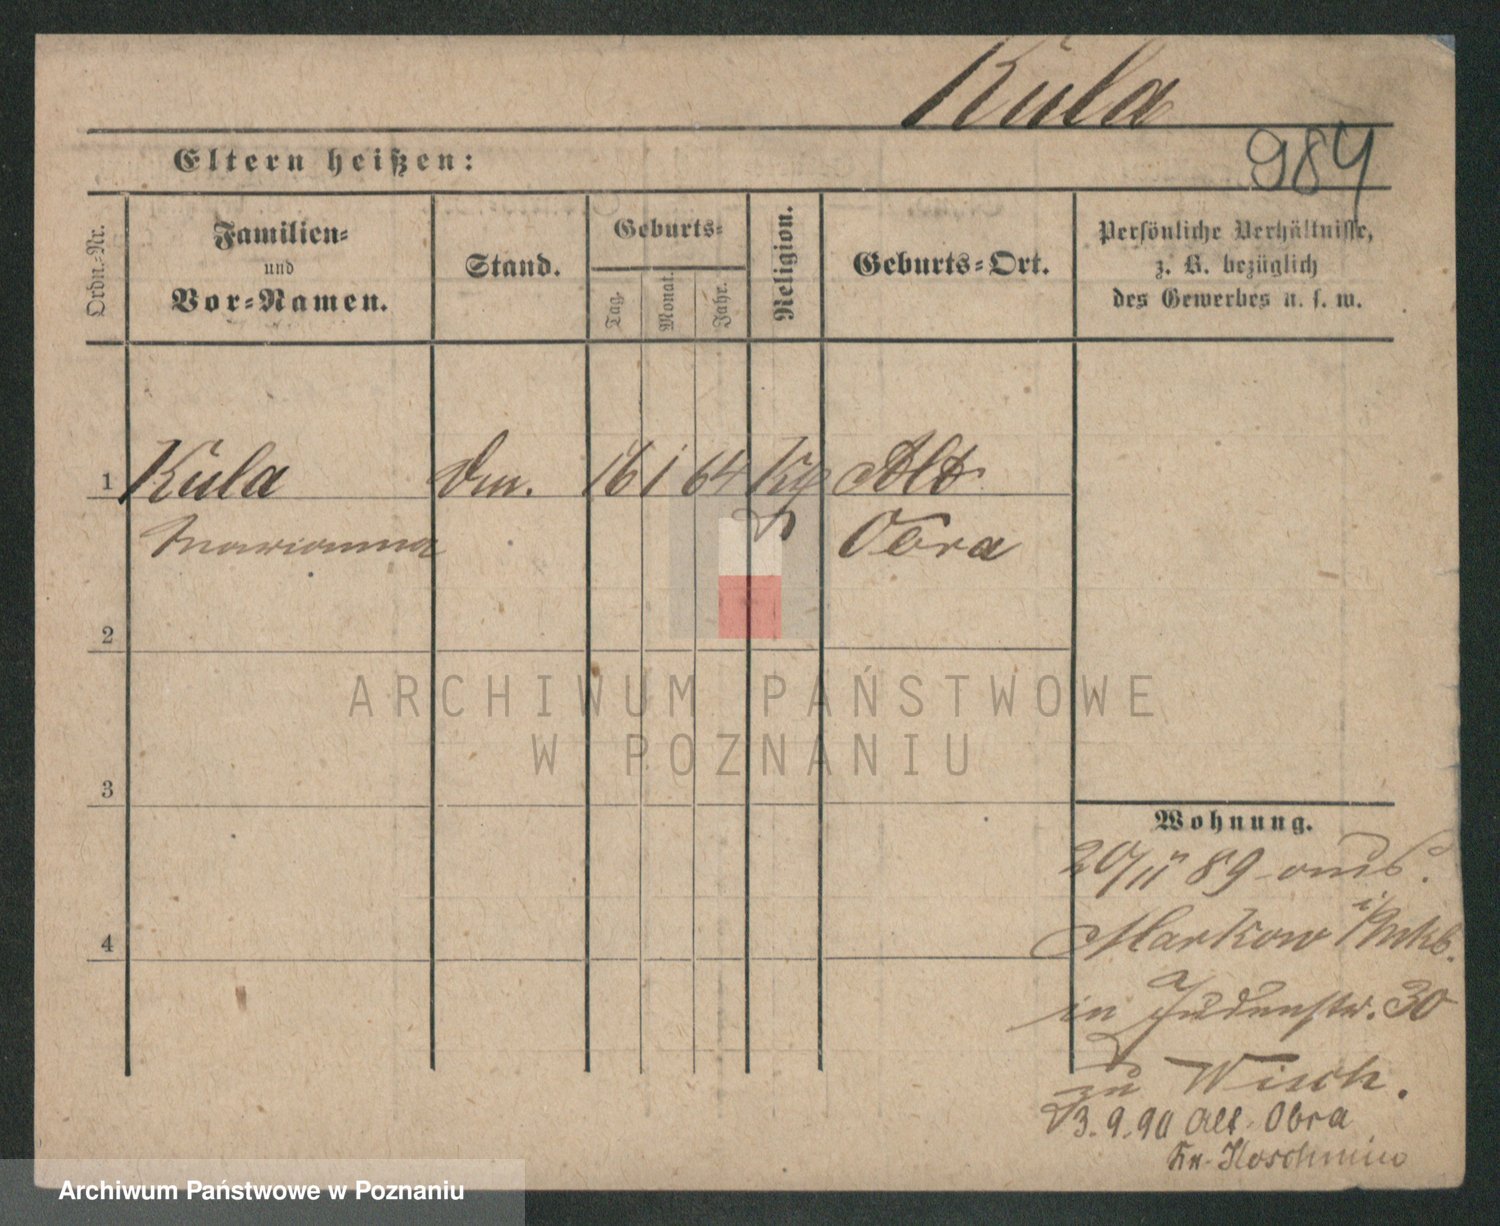 Kula
984
Eltern heißen:
Ordn.-Nr.
Familien-
und
Vor-Namen.
Stand.
Geburts-
Tag.
Monat.
Jahr.
Religion.
Geburts-Ort.
Persönliche Verhältnisse,
z. B. bezüglich
des Gewerbes u. s. w.
1 Kula 16 1 64 Alt
Marianna Obra
2
3
4
ARCHIWUM PAŃSTWOWE
W POZNANIU
Wohnung.
20/11 89
Markow
in Judenstr. 30
zu Wisch.
3.9.90 Alt-Obra
Kr. Koschmin
Archiwum Państwowe w Poznaniu